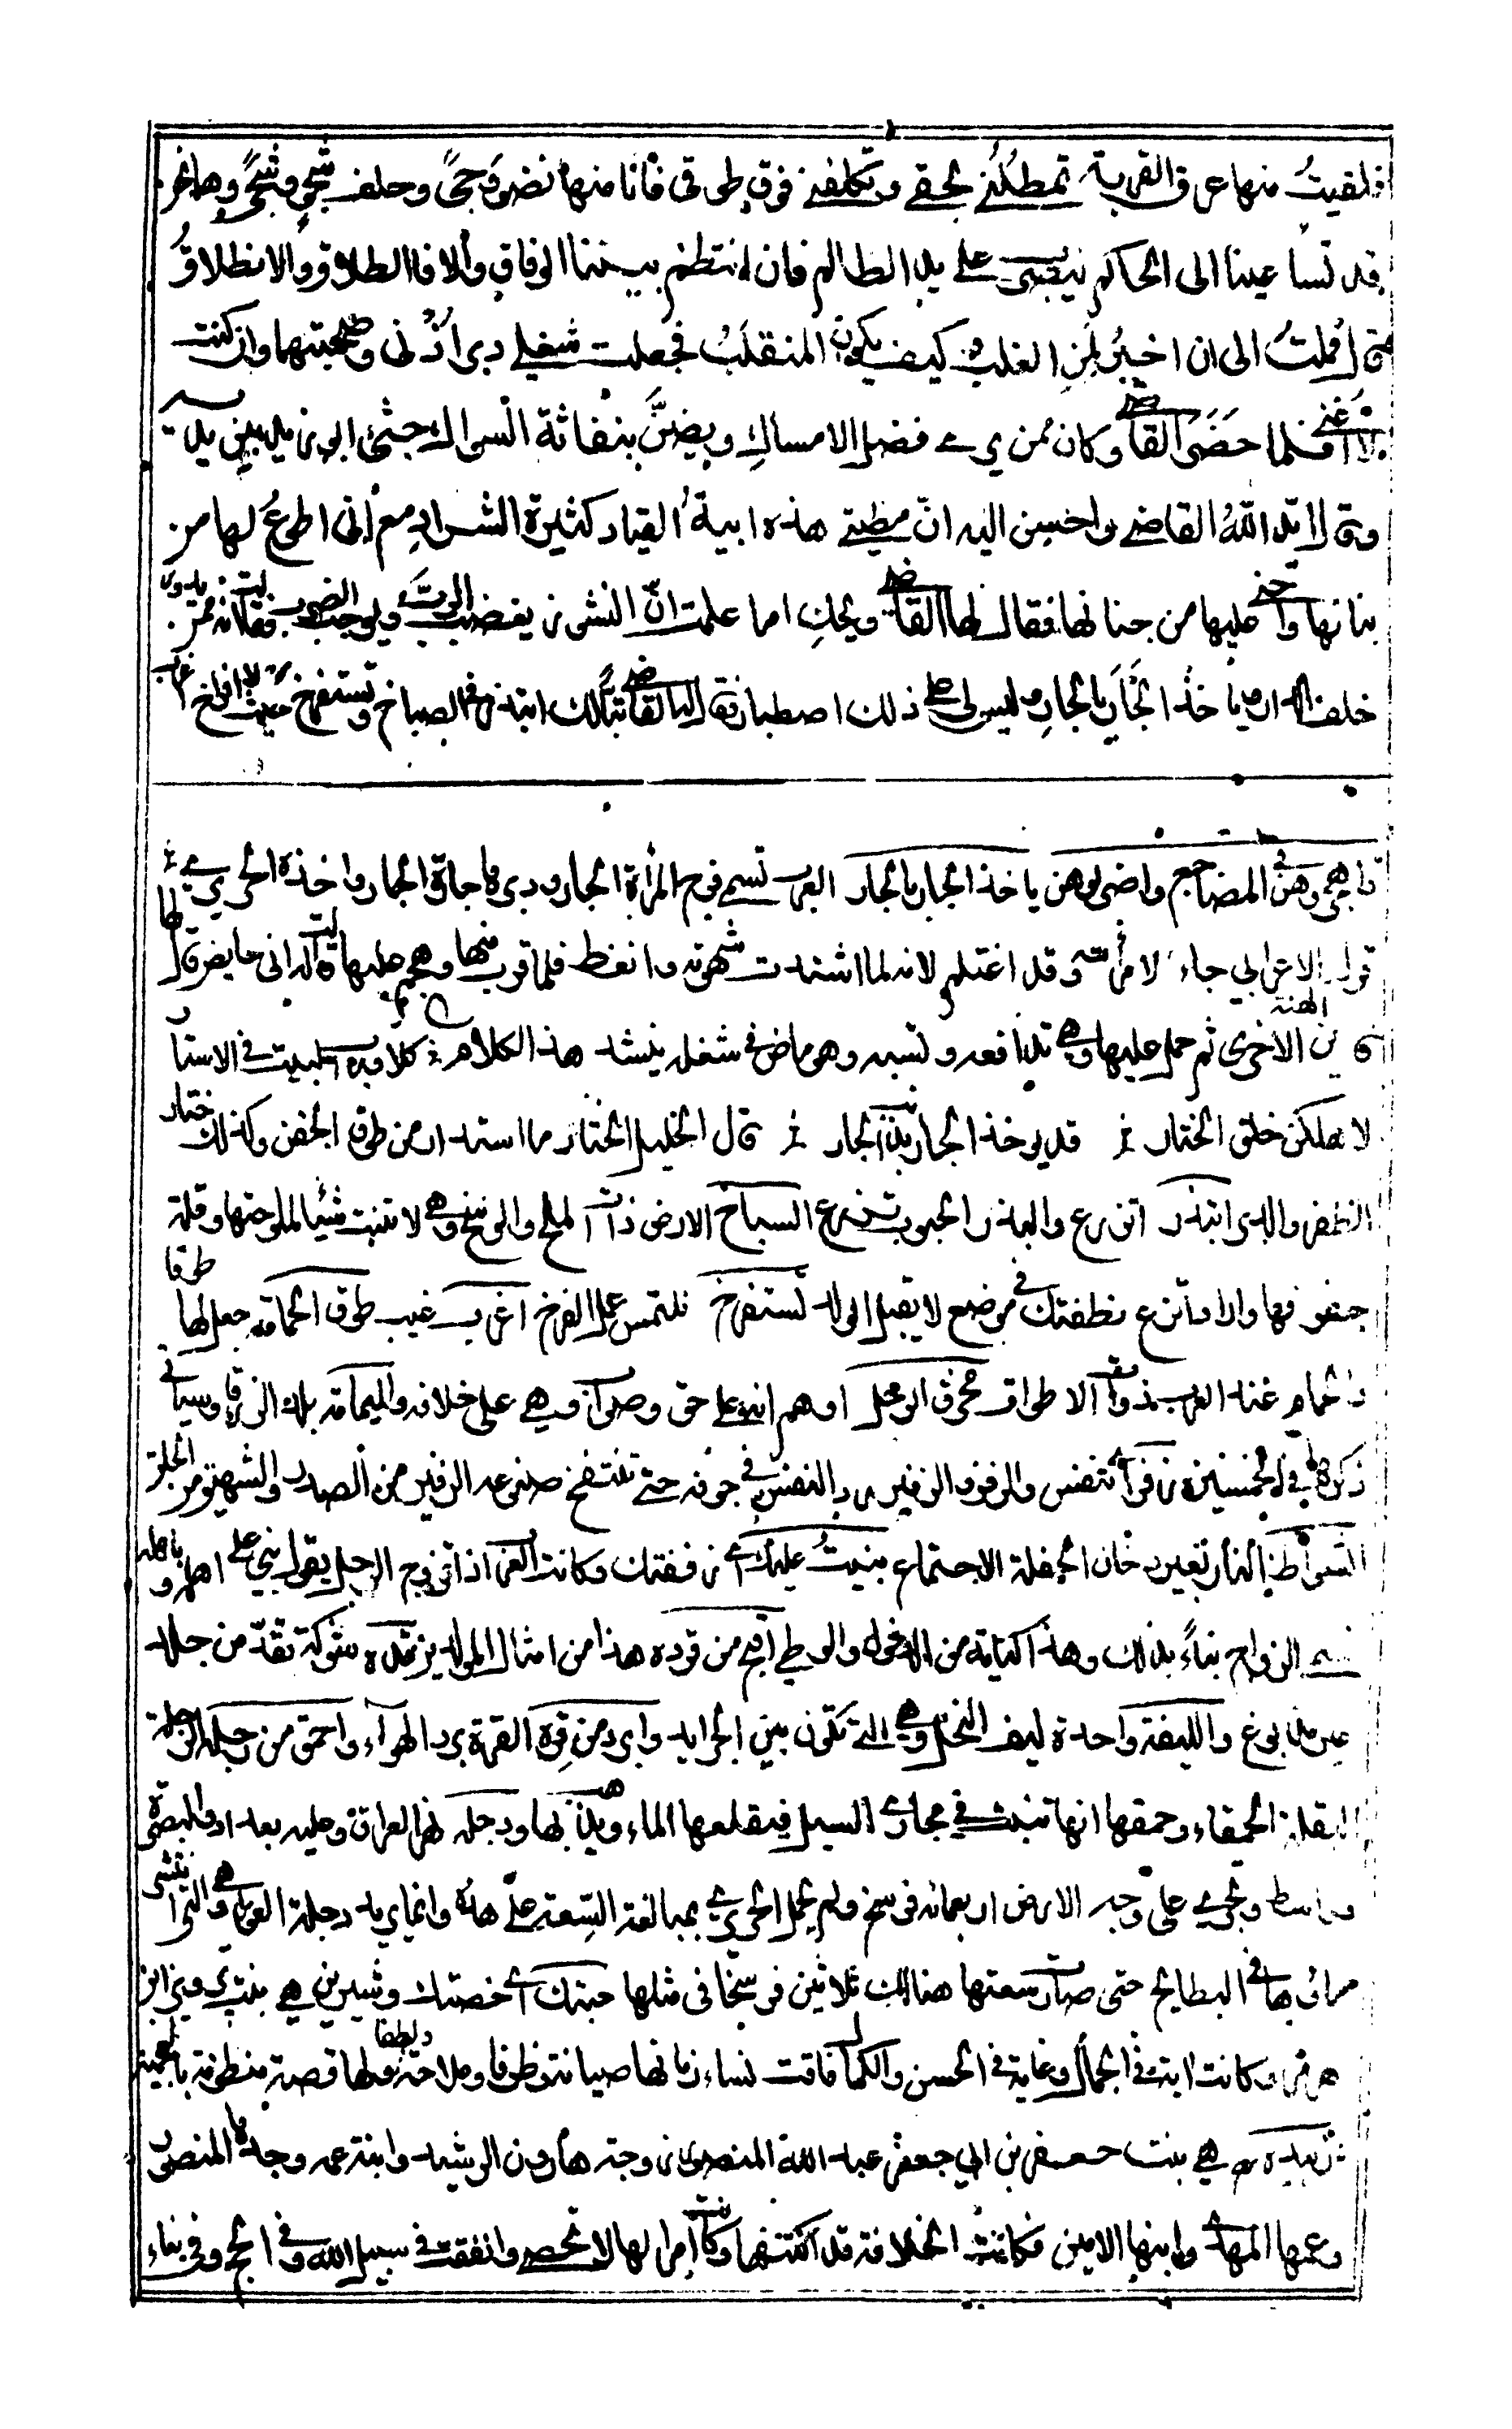 فلقيتُ منها عرق القربة تمطلنى بحقى وتكلفنى فوق طوقى فانا منها نضو وجى وحلف شجو وشجى وها نحن
قد تساعينا الى الحاكم ليضرب على يد الظالم فان انتظم بيننا الوفاق والا فالطلاق والانطلاق
قال فملت الى ان اخبر لمن الغلب وكيف يكون المنقلب فجعلت شغلى دبر اذنى وصحبتهما وان كنت
لا اغنى فلما حضر القاضى وكان ممن يرى فضل الامساك ويضن بنفاثة السواك جثى ابو زيد بين يديه
وقال ايد الله القاضى واحسن اليه ان مطيتى هذه ابية القياد كثيرة الشراد مع انى اطوع لها من
بنانها واحنى عليها من جنانها فقال لها القاضى ويحك اما علمت ان النشوز يغضب الرب ويوجب الضرب فقالت انه ممن يدور
خلف الدار وياخذ الجار بالجار وليس لى على ذلك اصطبار فقال له القاضى تبا لك اتبذر فى السباخ وتستفرخ حيث لا افراخ اعزب
واهجروهن فى المضاجع واضربوهن ياخذ الجار بالجار العرب تسمى فرج المراة الجار ودبرها جارة الجار واخذه الحريرى من
قول الاعرابي جاء لامراته وقد اغتلم لانه لما اشتدت شهوته وانغظ فلما قرب منها وهجم عليها قالت انى حايض قال لها
فاين الهنة الاخرى ثم حمل عليها وهى تدافعه وتسبه وهو ماض فى شغله ينشد هذا الكلام كلا ورب البيت ذى الاستار
لاهلكن حلق الحتار قد يوخذ الجار بذنب الجار قال الخليل الحتار ما استدار من طرف الجفن وكذلك حتار
الظفر والدبر اتبذر اتزرع والبذر الحبوب تزرع السباخ الارض ذات الملح والنز وهى لا تنبت شيئا لملوحتها وقلة
جفوفها والاراد اتزرع نطفتك فى موضع لا يقبل الولد تستفرخ تلتمس عمل الفرخ اعزب غيب طوق الحمامة جعل لها طوقا
والحمام عند العرب ذوات الاطواق مخرق ابو عمل اوهم انه على حق وصواب وهى على خلافه واليمامة بلد الزرقا وسياتى
ذكرها فى الخمسين زفر اى تنفس والزفر والزفير رد النفس فى جوفه حتى تنتفخ ضلوعه الزفير من الصدر والشهيق من الحلق
الشواظ النار بغير دخان الحفلة الاجتماع بنيت عليك اى زففتك وكانت العرب اذا تزوج الرجل يقول بنى على اهله وباهله
فسمى الزواج بناء بذلك وهذا كناية من الدخول والوطى اقبح من قردة هذا من امثال المولدين قدة شركة تقد من جلد
غير مدبوغ والليفة واحدة ليف النخل وهى التى تكون بين الجرايد وابرد من قرة القرة برد الهواء واحمق من رجلة الرجلة
البقلة الحمقاء وحمقها انها تنبت فى مجارى السيل فيقلعها الماء ويذهب بها ودجلة نهر العراق وعليه بغداد والبصرة
وواسط وتجرى على وجه الارض اربعمائة فرسخ ولم يحمل الحريرى بمبالغة السعة على هذه وانما يريد دجلة العوراء وهى التى انتشر
ماؤها فى البطايح حتى صارت سعتها هنالك ثلاثين فرسخا فى مثلها حيتك اى خصتك وشيرين هى بنت پرويز ابن
هرمز وكانت اية فى الجمال وغاية فى الحسن والكمال فاقت نساء زمانها صيانة وظرفا وملاحة ولطفا ولها قصة منظومة بالعجمية
زبيدة هى بنت جعفر بن ابي جعفر عبد الله المنصور زوجة هارون الرشيد وابنة عمه وجدها المنصور
وعمها المهدى وابنها الامين فكانت الخلافة قد اكتنفتها وكانت اموالها لا تحصى وانفقت فى سبيل الله وفى الحج وفى بناء